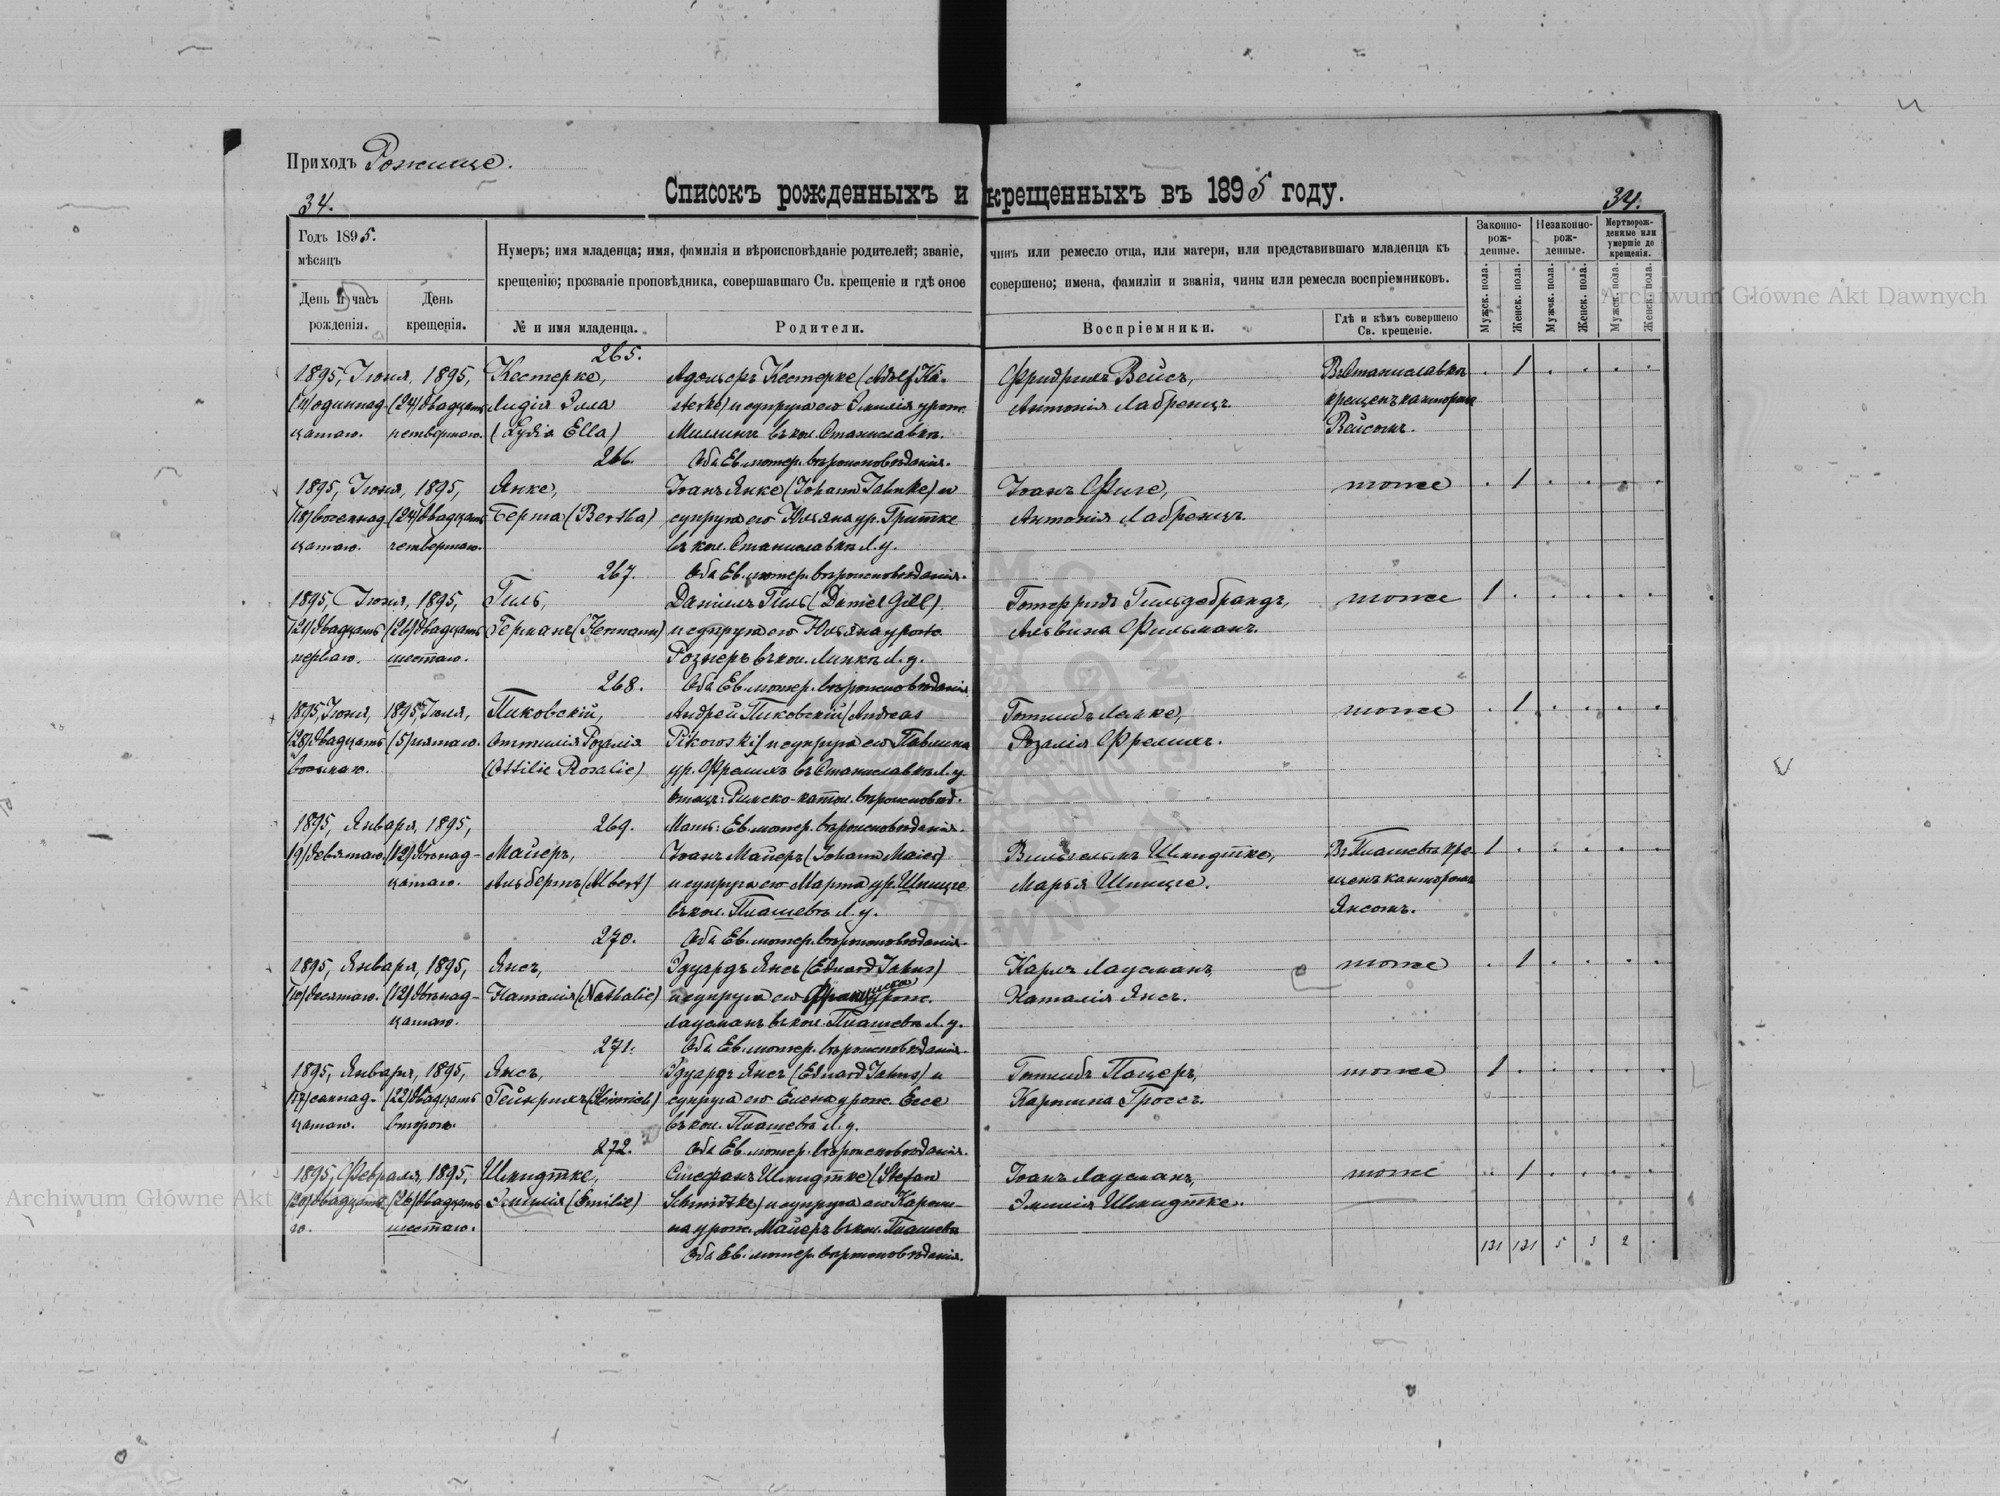 Приходъ Рожище.
34.
Списокъ рожденныхъ и крещенныхъ въ 1895 году.
34.
Годъ 1895.
мѣсяцъ
День и часъ рожденія.
День крещенія.
Нумеръ; имя младенца; имя, фамилія и вѣроисповѣданіе родителей; званіе, чинъ или ремесло отца, или матери, или представившаго младенца къ
крещенію; прозваніе проповѣдника, совершавшаго Св. крещеніе и гдѣ оное совершено; имена, фамиліи и званія, чины или ремесла воспріемниковъ.
№ и имя младенца.
Родители.
Воспріемники.
Гдѣ и кѣмъ совершено Св. крещеніе.
Законно-рож-денные.
Незаконно-рож-денные.
Мертворож-денные или умершіе до крещенія.
Мужск. пола.
Женск. пола.
Мужск. пола.
Женск. пола.
Мужск. пола.
Женск. пола.
265.
1895, Іюня, 1895, Кестерке, Адольфъ Кестерке (Adolf Kä- Фридрихъ Вейсъ, Въ Станиславкѣ . 1 . . . .
(11) одиннад- (24) двадцать Лидія Элла sterke) и супруга его Эмилія урож. Антонія Лабренцъ крещенъ канторомъ
цатаго. четвертаго. (Lydia Ella) въ кол. Станиславкѣ. Вейсомъ.
266. Оба Ев. лютер. вѣроисповѣданія.
1895, Іюня, 1895, Янке, Іоанъ Янке (Johann Jahnke) и Іоанъ тоже . 1 . . . .
(18) восемнад- (24) двадцать Берта (Bertha) супруга его Юльяна ур. Гритке Антонія Лабренцъ.
цатаго. четвертаго. въ кол. Станиславкѣ Л. у.
267. Оба Ев. лютер. вѣроисповѣданія.
1895, Іюня, 1895, Гиль, Даніилъ Гиль (Daniel Gill) Готфридъ Гильдебрандъ, тоже 1 . . . . .
(21) двадцать (26) двадцать Германъ (Hermann) и супруга его Юльяна урож. Альвина Фильманъ.
перваго. шестаго. Рознеръ въ кол. Л. у.
268. Оба Ев. лютер. вѣроисповѣданія
1895, Іюня, 1895, Іюля, Пиковскій, Андрей Пиковскій (Andreas Готлибъ Лемке, тоже . 1 . . . .
(28) двадцать (5) пятаго. Оттилія Розалія Pikowski) и супруга его Павлина Розалія Фрелихъ.
восьмаго. (Ottilie Rosalie) ур. Фрелихъ въ Станиславкѣ Л. у.
Отецъ: Римско-катол. вѣроисповѣд.
1895, Января, 1895, 269. Мать: Ев. лютер. вѣроисповѣданія.
(9) девятаго (12) двѣнад- Майеръ, Іоанъ Майеръ (Johann Maier) Вильгельмъ Шмидтке, Въ Пташевѣ кре- 1 . . . . .
цатаго. Альбертъ (Albert) и супруга его Марта ур. Шпицге Марья Шпицге. щенъ канторомъ
въ кол. Пташевѣ Л. у. Янсомъ.
270. Оба Ев. лютер. вѣроисповѣданія.
1895, Января, 1895, Янсъ, Эдуардъ Янсъ (Eduard Jahns) Карлъ Лаусманъ, тоже . 1 . . . .
(10) десятаго. (12) двѣнад- Наталія (Nathalie) и супруга его урож. Наталія Янсъ.
цатаго. Лаусманъ въ кол. Пташевѣ Л. у.
271. Оба Ев. лютер. вѣроисповѣданія.
1895, Января, 1895, Янсъ, Эдуардъ Янсъ (Eduard Jahns) и Готлибъ Пацеръ, тоже 1 . . . . .
(17) семнад- (22) двадцать Гейнрихъ (Heinrich) супруга его Елена урож. Есе Каролина Гроссъ.
цатаго. втораго. въ кол. Пташевѣ Л. у.
272. Оба Ев. лютер. вѣроисповѣданія.
1895, Февраля, 1895, Шмидтке, Стефанъ Шмидтке (Stefan Іоанъ Лаусманъ, тоже . 1 . . . .
(20) двадцата- (26) двадцать Эмилія (Emilie) Schmidtke) и супруга его Кароли- Эмилія Шмидтке.
го. шестаго. на урож. Майеръ въ кол. Пташевѣ
Оба Ев. лютер. вѣроисповѣданія.
131 131 5 3 2 .
Archiwum Główne Akt Dawnych
Archiwum Główne Akt Dawnych